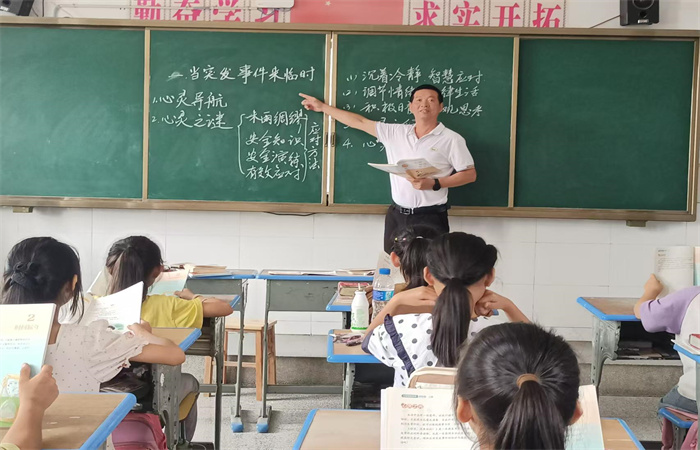 勤奋学
求实开拓
一、当突发事件来临时
1.心灵导航
2.心灵之谜
未雨绸缪
安全知识
安全演练
有效应对
应对方法
(1) 沉着冷静 智慧应对
(2) 调节情绪 律生活
(3) 积极 思考
4. 心